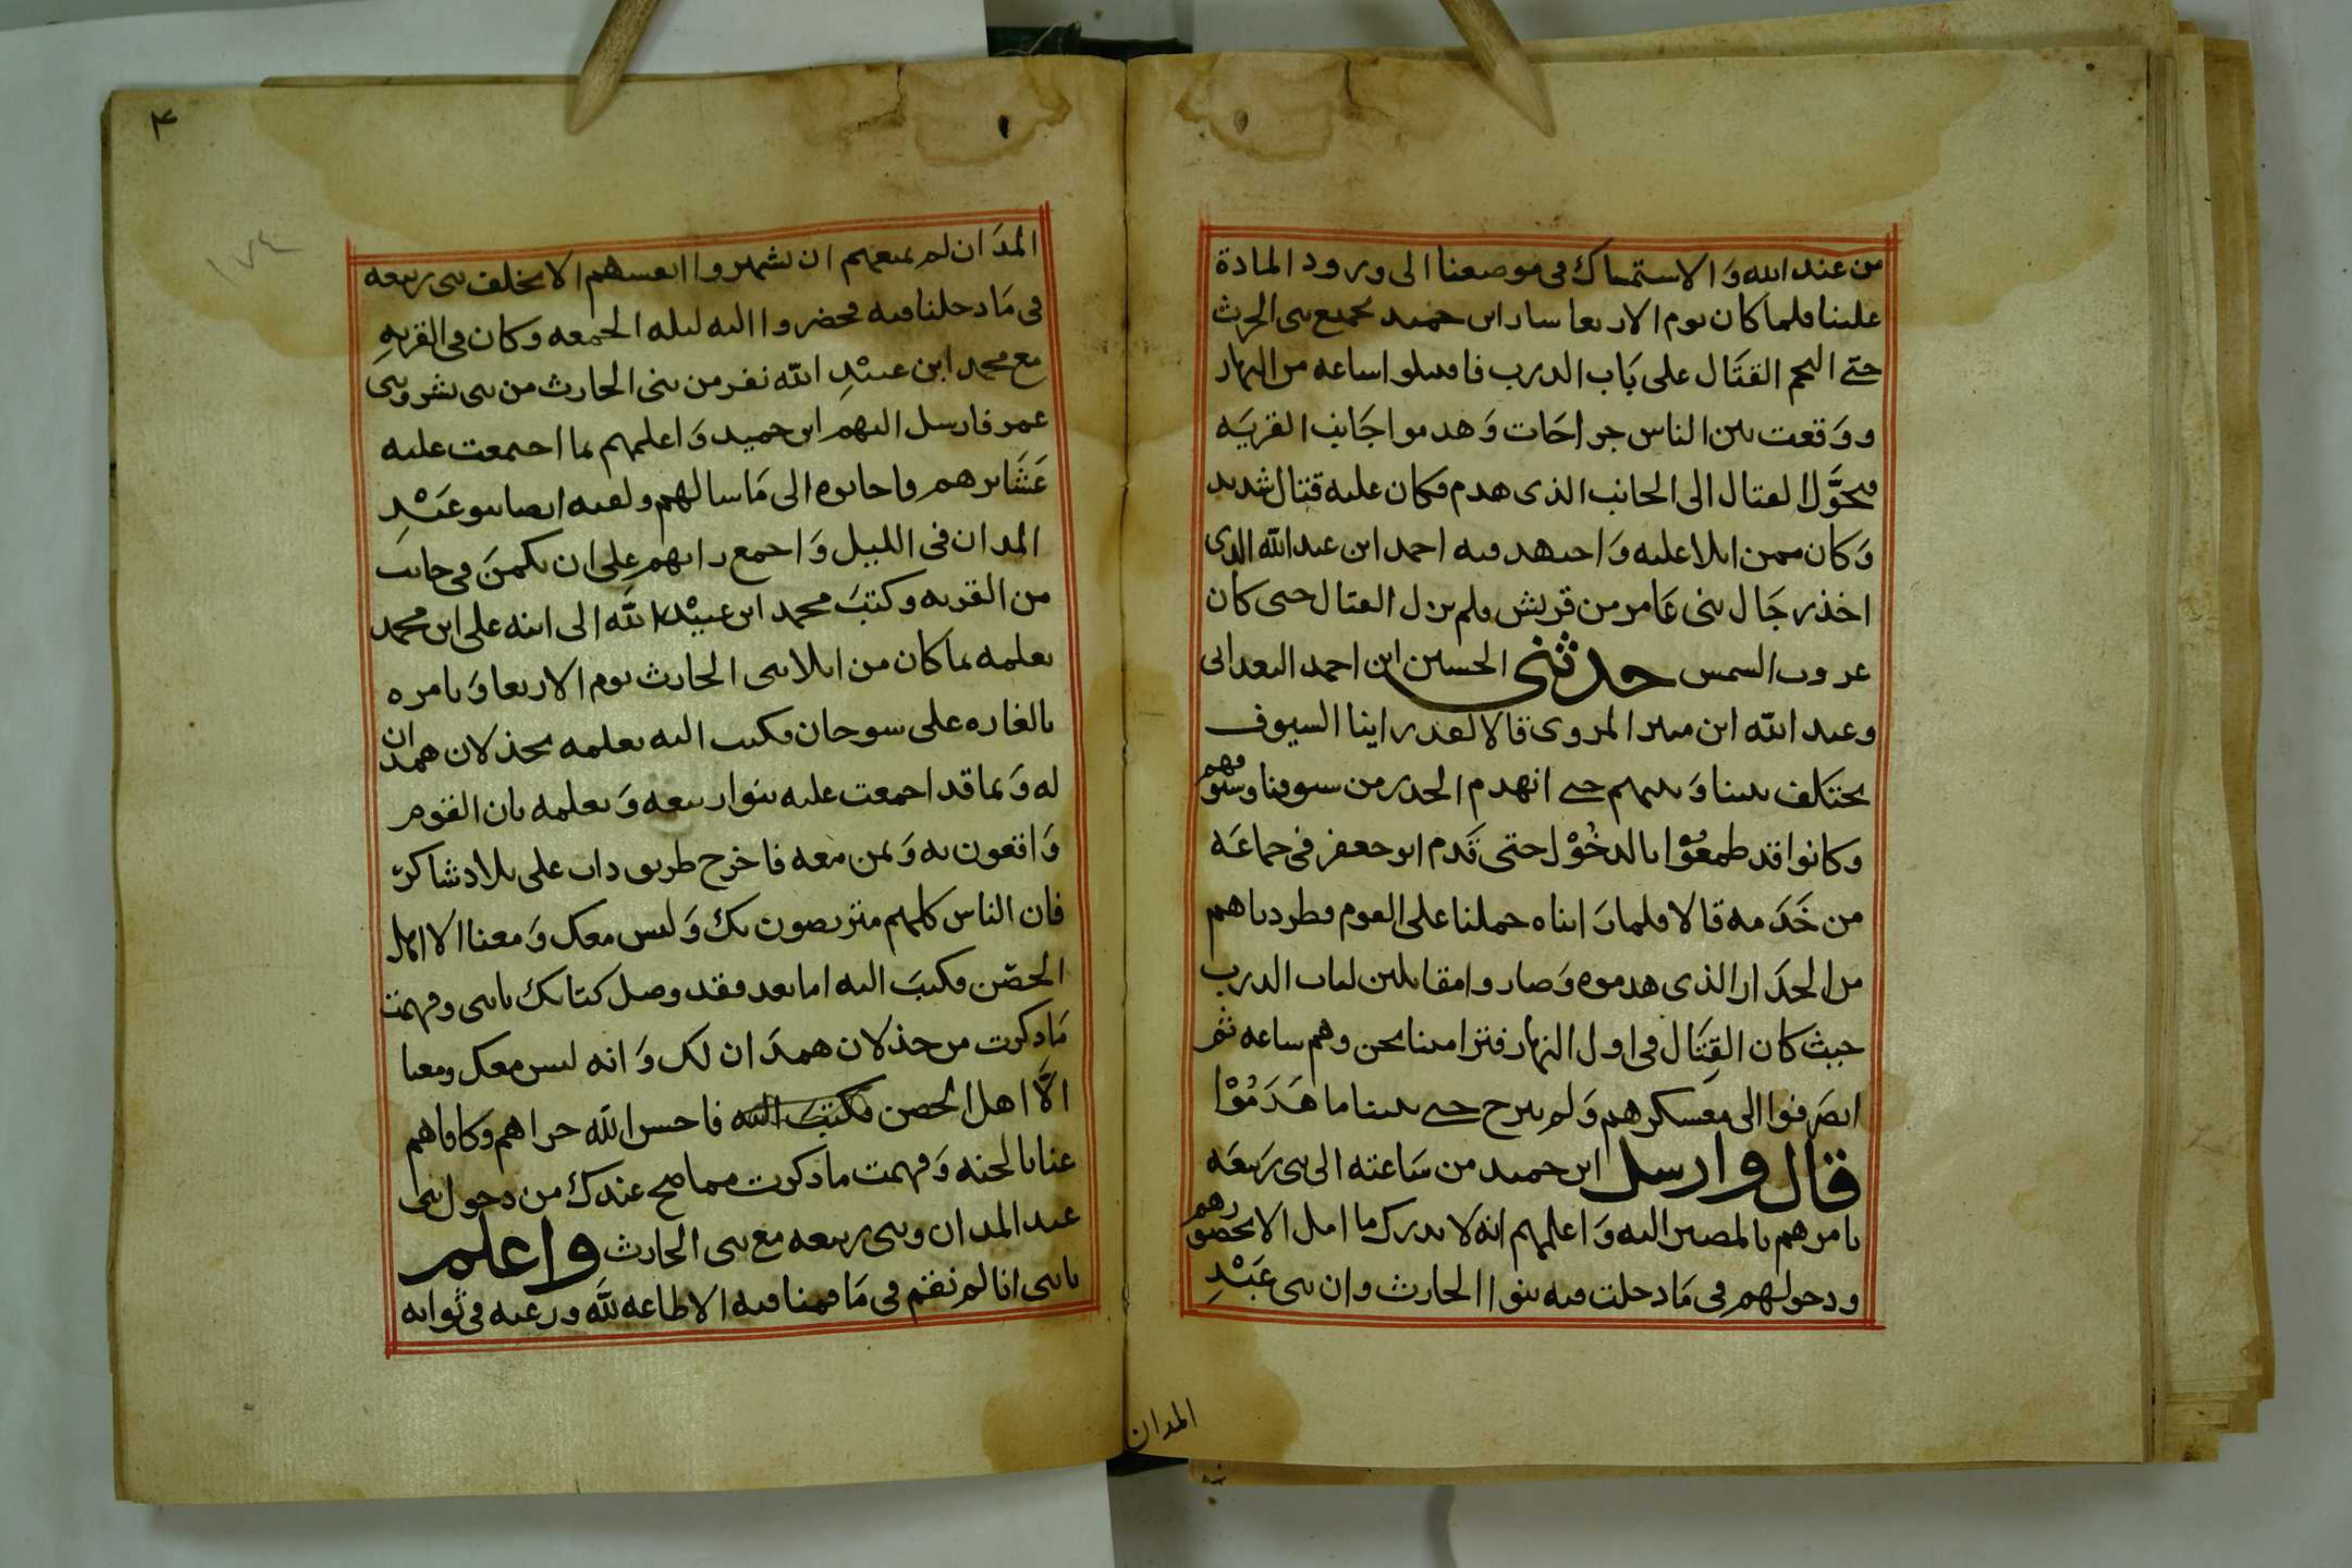 من عند الله وَالاستمساك في موضعنا الى ورود المادة
علينا فلما كان يوم الاربعا سار ابن حميد بجميع بني الحرث
حتى التحم القتَال على بَاب الدرب فاقتتلوا ساعه من النهار
ووَقعت بين الناس جراحَات وَهدموا جَانب القريَه
فتحوَّل القتال الى الجانب الذي هدم فكان عليه قتال شديد
وَكان ممن ابلا عليه وَاجتهد فيه احمد ابن عبد الله الذي
اخذ رجَال بني عَامر من قريش فلم يزل القتال حتى كان
غروب الشمس حدثني الحسين ابن احمد البغدادي
وعبد الله ابن المروي قالا لقد راينا السيوف
يختَلف بيننا وَبينهم حتى انهدم الجدر من سيوفنا وسيوفهم
وكانوا قد طمعُوْا بالدخُوْل حتى قَدم ابو جعفر في جماعَه
من خَدَمه قالا فلما رَايناه حملنا على القوم وطردناهم
من الجدَار الذي هدموه وَصاروا مقابلين لباب الدرب
حيث كان القِتَال في اول النهار فترامينا نحن وهم ساعه ثم
انصرَفوا الى معسكرهم وَلم يبرح حتى بنينا ما هَدَمُوْا
قال وارسل ابن حميد من سَاعته الى بني رَبيعَه
يامرهم بالمصير اليه وَاعلمهم انه لا يدرك ما امل الا بحضورهم
ودخولهم في مَا دخلت فيه بنوا الحارث وان بني عَبْدِ
المدان
٤
١٧٤
المدَان لم يمنعهم ان يشهروا انفسهم الا تخلف بني ربيعه
في مَا دخلنا فيه فحضروا اليه ليله الجمعه وكان في القريهِ
مع محمد ابن عبيْدِ الله نفر من بني الحارث من بني بشر وبني
عمر فارسل اليهم ابن حميد وَاعلمهم بما اجتمعت عليه
عَشَايرهم واجابوه الى مَا سالهم ولقيه ايضا بنو عَبْدِ
المدان في الليل وَاجمع رايهم على ان يكمنَ في جانب
من القريه وكتبَ محمد ابن عبيْد الله الى ابنه علي ابن محمد
يعلمه بما كان من ابلا بني الحارث يوم الاربعا وَيامره
بالغاره على سوحان فكتب اليه يعلمه بخذلان همدان
له وَبما قد اجمعت عليه بنوا ربيعه وَيعلمه بان القوم
وَاقعون به وَبمن معه فاخرج طريق داب على بلاد شاكرٍ
فان الناس كلهم متربصون بك وَليس معك وَمعنا الا اهل
الحصْن فكتبَ اليه اما بعد فقد وصل كتابك يابني وفهمت
مَا ذكرت من خذلان همدَان لك وَانه ليس معك ومعنا
الَّا اهل الحصن فكتبَ اليه فاحسن الله جزاهم وكافاهم
عنا بالجنه وَفهمت ما ذكرت مما صح عندك من دخول بني
عبد المدان وبني ربيعه مع بني الحارث واعلم
يابني انا لم نقم في مَا قمنا فيه الا طاعه لله ورغبه في ثوابه